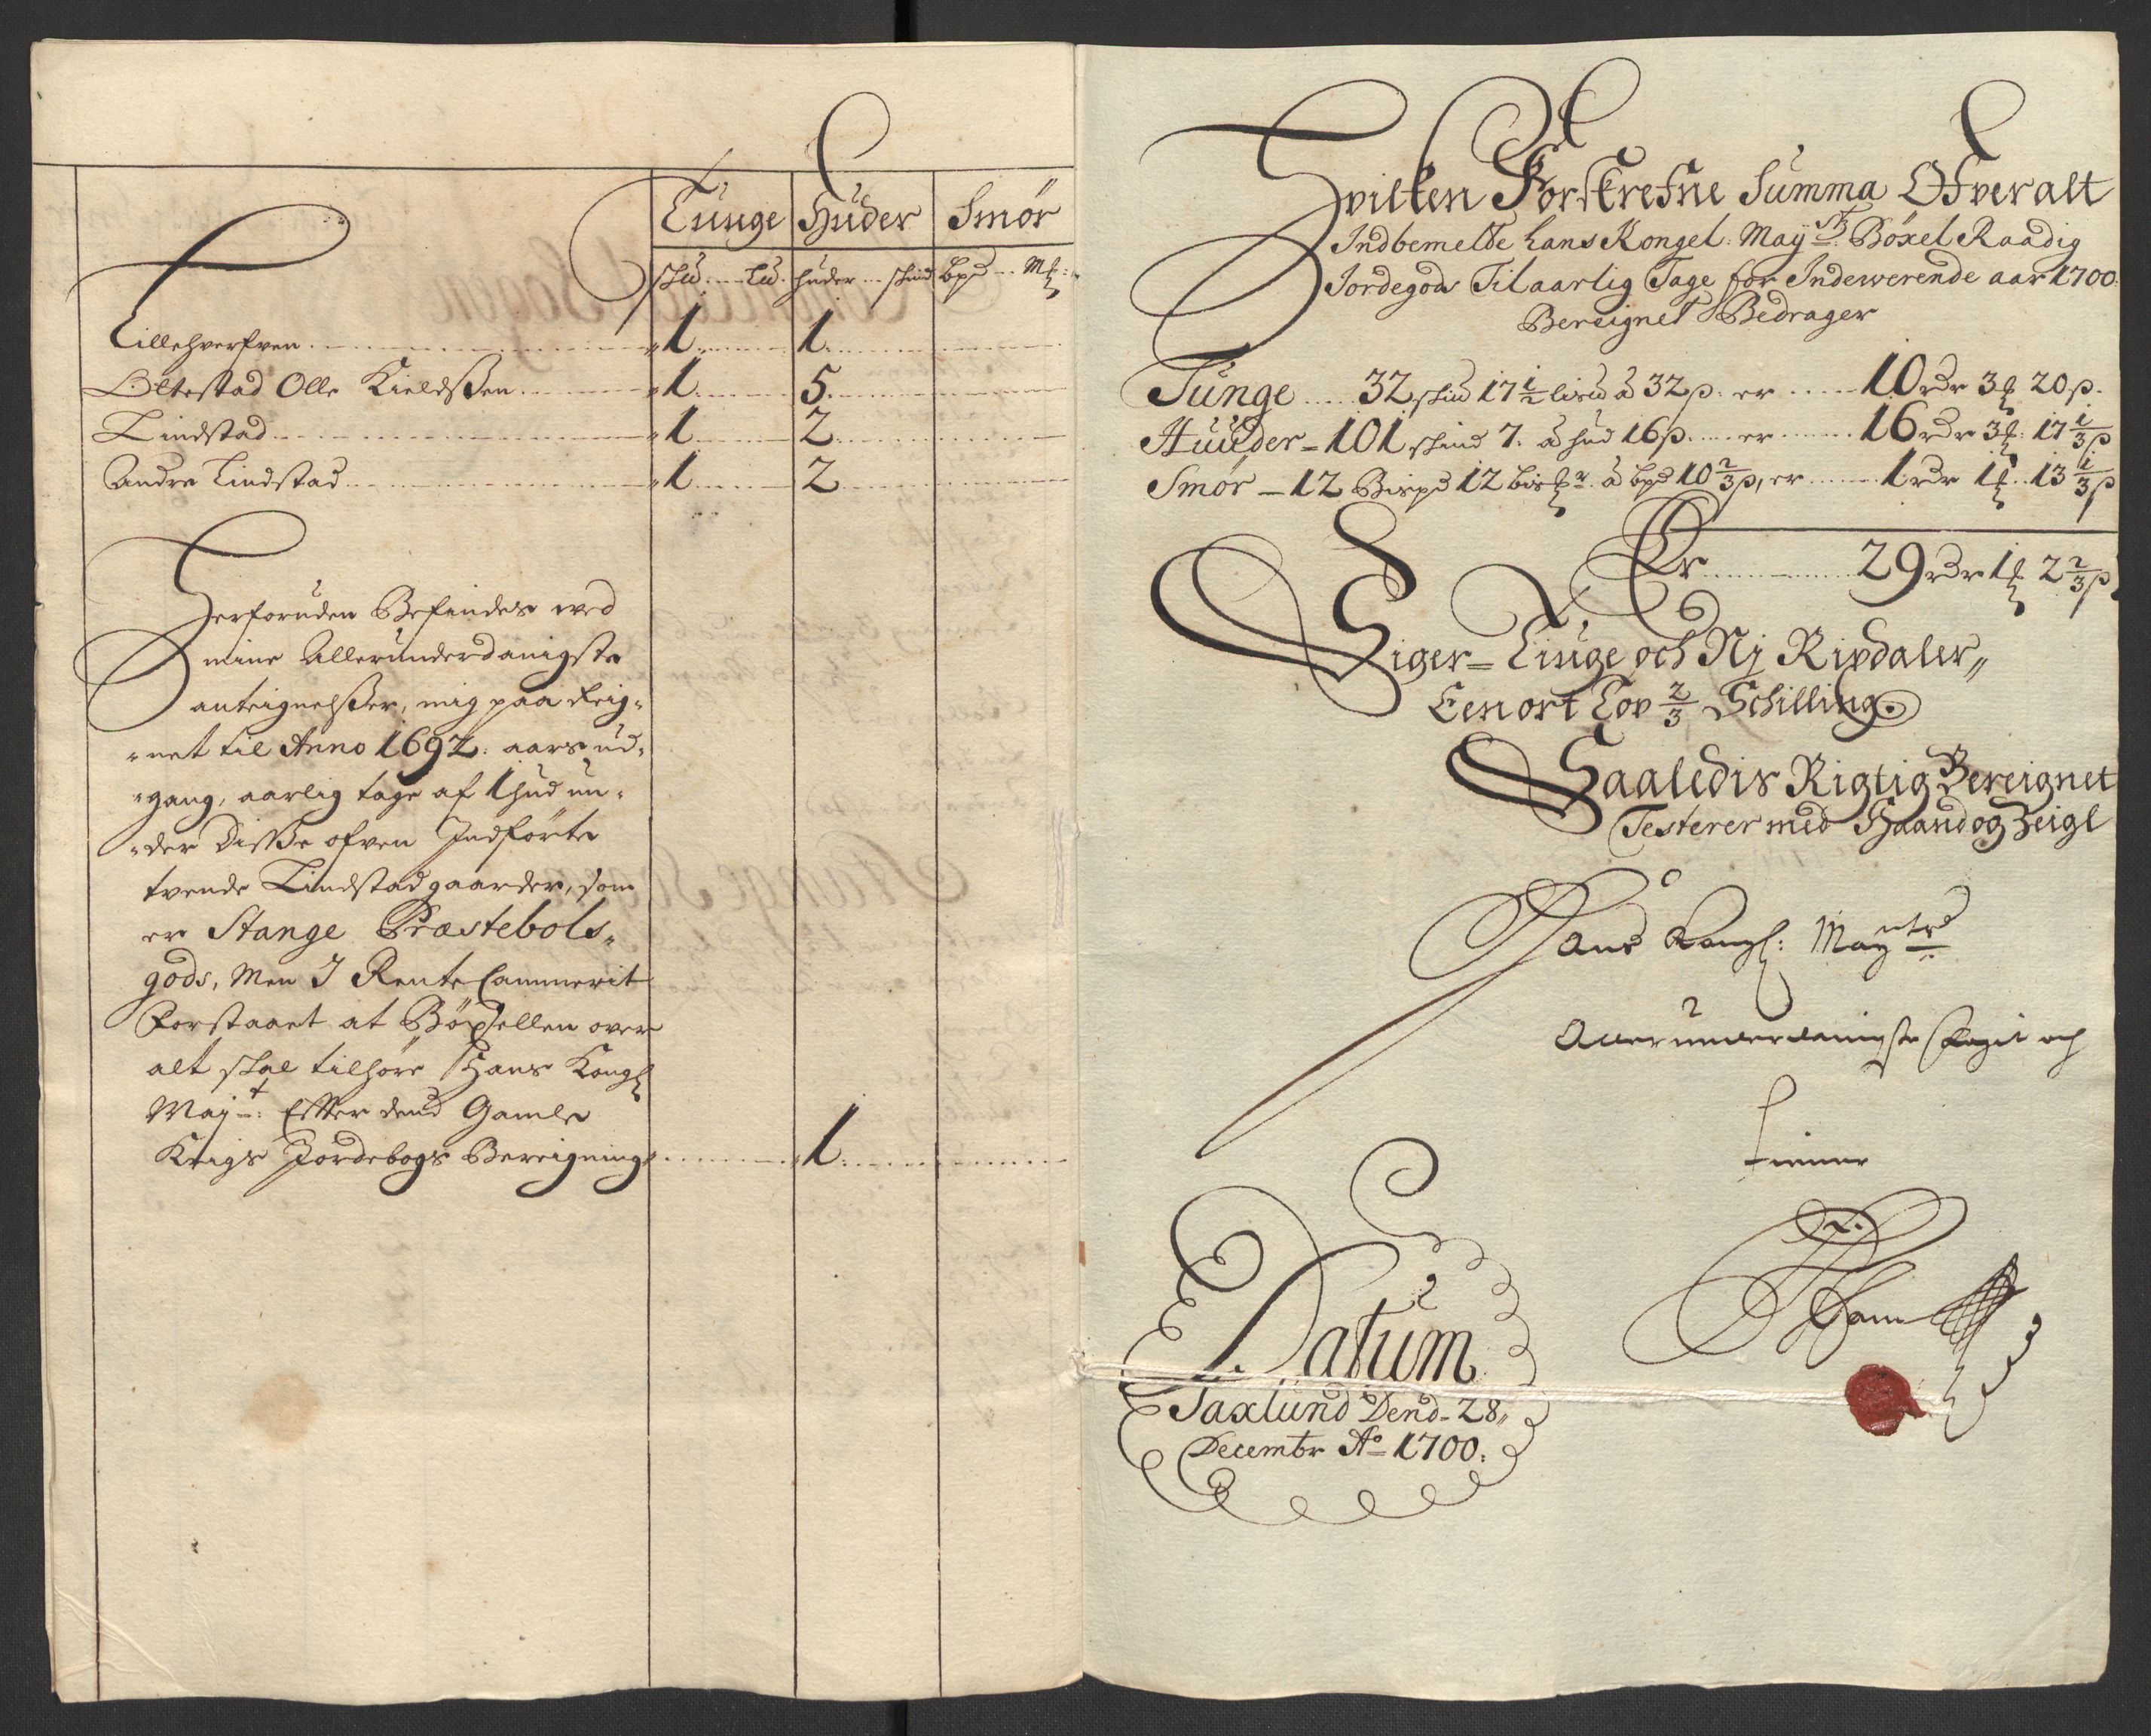 Tunge Huder Smör
skud Lu. huder skind bpd Mk:
Lillehverfven 1 1
Oltestad Olle Kieldßen 1 5
Lindstad 1 2
Andre Lindstad 1 2
Herforuden Befindes ved
mine Allerunderdanigste
anteignelßer, mig paa Reig-
-net til Anno 1692. aars ud-
-gang, aarlig tage af 1 hud un-
-der Disse ofven Indförte
tvende Lindstad gaarder, som
er Stange Præstebols-
gods, Men I Rente Cammerit
Forstaaet at Böxsellen over
alt skal tilhöre Hans Kongl
May-t: Effter dend Gamle
Krigs Jordebogs Bereigning 1
Hvilken Forskrefne Summa Ofveralt
Indbemelte hans Kongel: Maysts: Böxel Raadig
Jordegods Til aarlig Tage for Indewerende aar 1700.
Bereignet Bedrager
Tunge 32 skud 17 1/2 lisud à 32 ß. er 10 rdr 3 k 20 ß.
Huuder - 101 skind 7. à hud 16 ß er 16 rdr 3 k: 17 1/3 ß
Smör - 12 Bispd 12 bismkr. à bpd 10 2/3 ß, er 1 rdr 1 k. 13 1/3 ß
Er 29 rdr 1 k 2 2/3 ß
Siger - Tiuge och Nj Rixdaler,,
Een ort Tov 2/3 Schilling.
Saaledis Rigtig Bereignet
Testerer med Haand og Zeigl
Hans Kongl: Mayests
Allerunderdanigste Pligt och
tienner
Datum
Saxlund Dend - 28,,
Decembr Ao 1700.